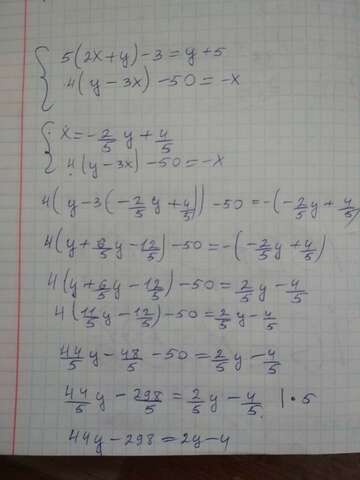 5(2x+y)-3=y+5
4(y-3x)-50=-x
x=-2/5 y+4/5
4(y-3x)-50=-x
4(y-3(-2/5 y+4/5))-50=-(-2/5 y+4/5)
4(y+6/5 y-12/5)-50=-(-2/5 y+4/5)
4(y+6/5 y-12/5)-50=2/5 y-4/5
4(11/5 y-12/5)-50=2/5 y-4/5
44/5 y-48/5-50=2/5 y-4/5
44/5 y-298/5=2/5 y-4/5 |·5
44y-298=2y-4